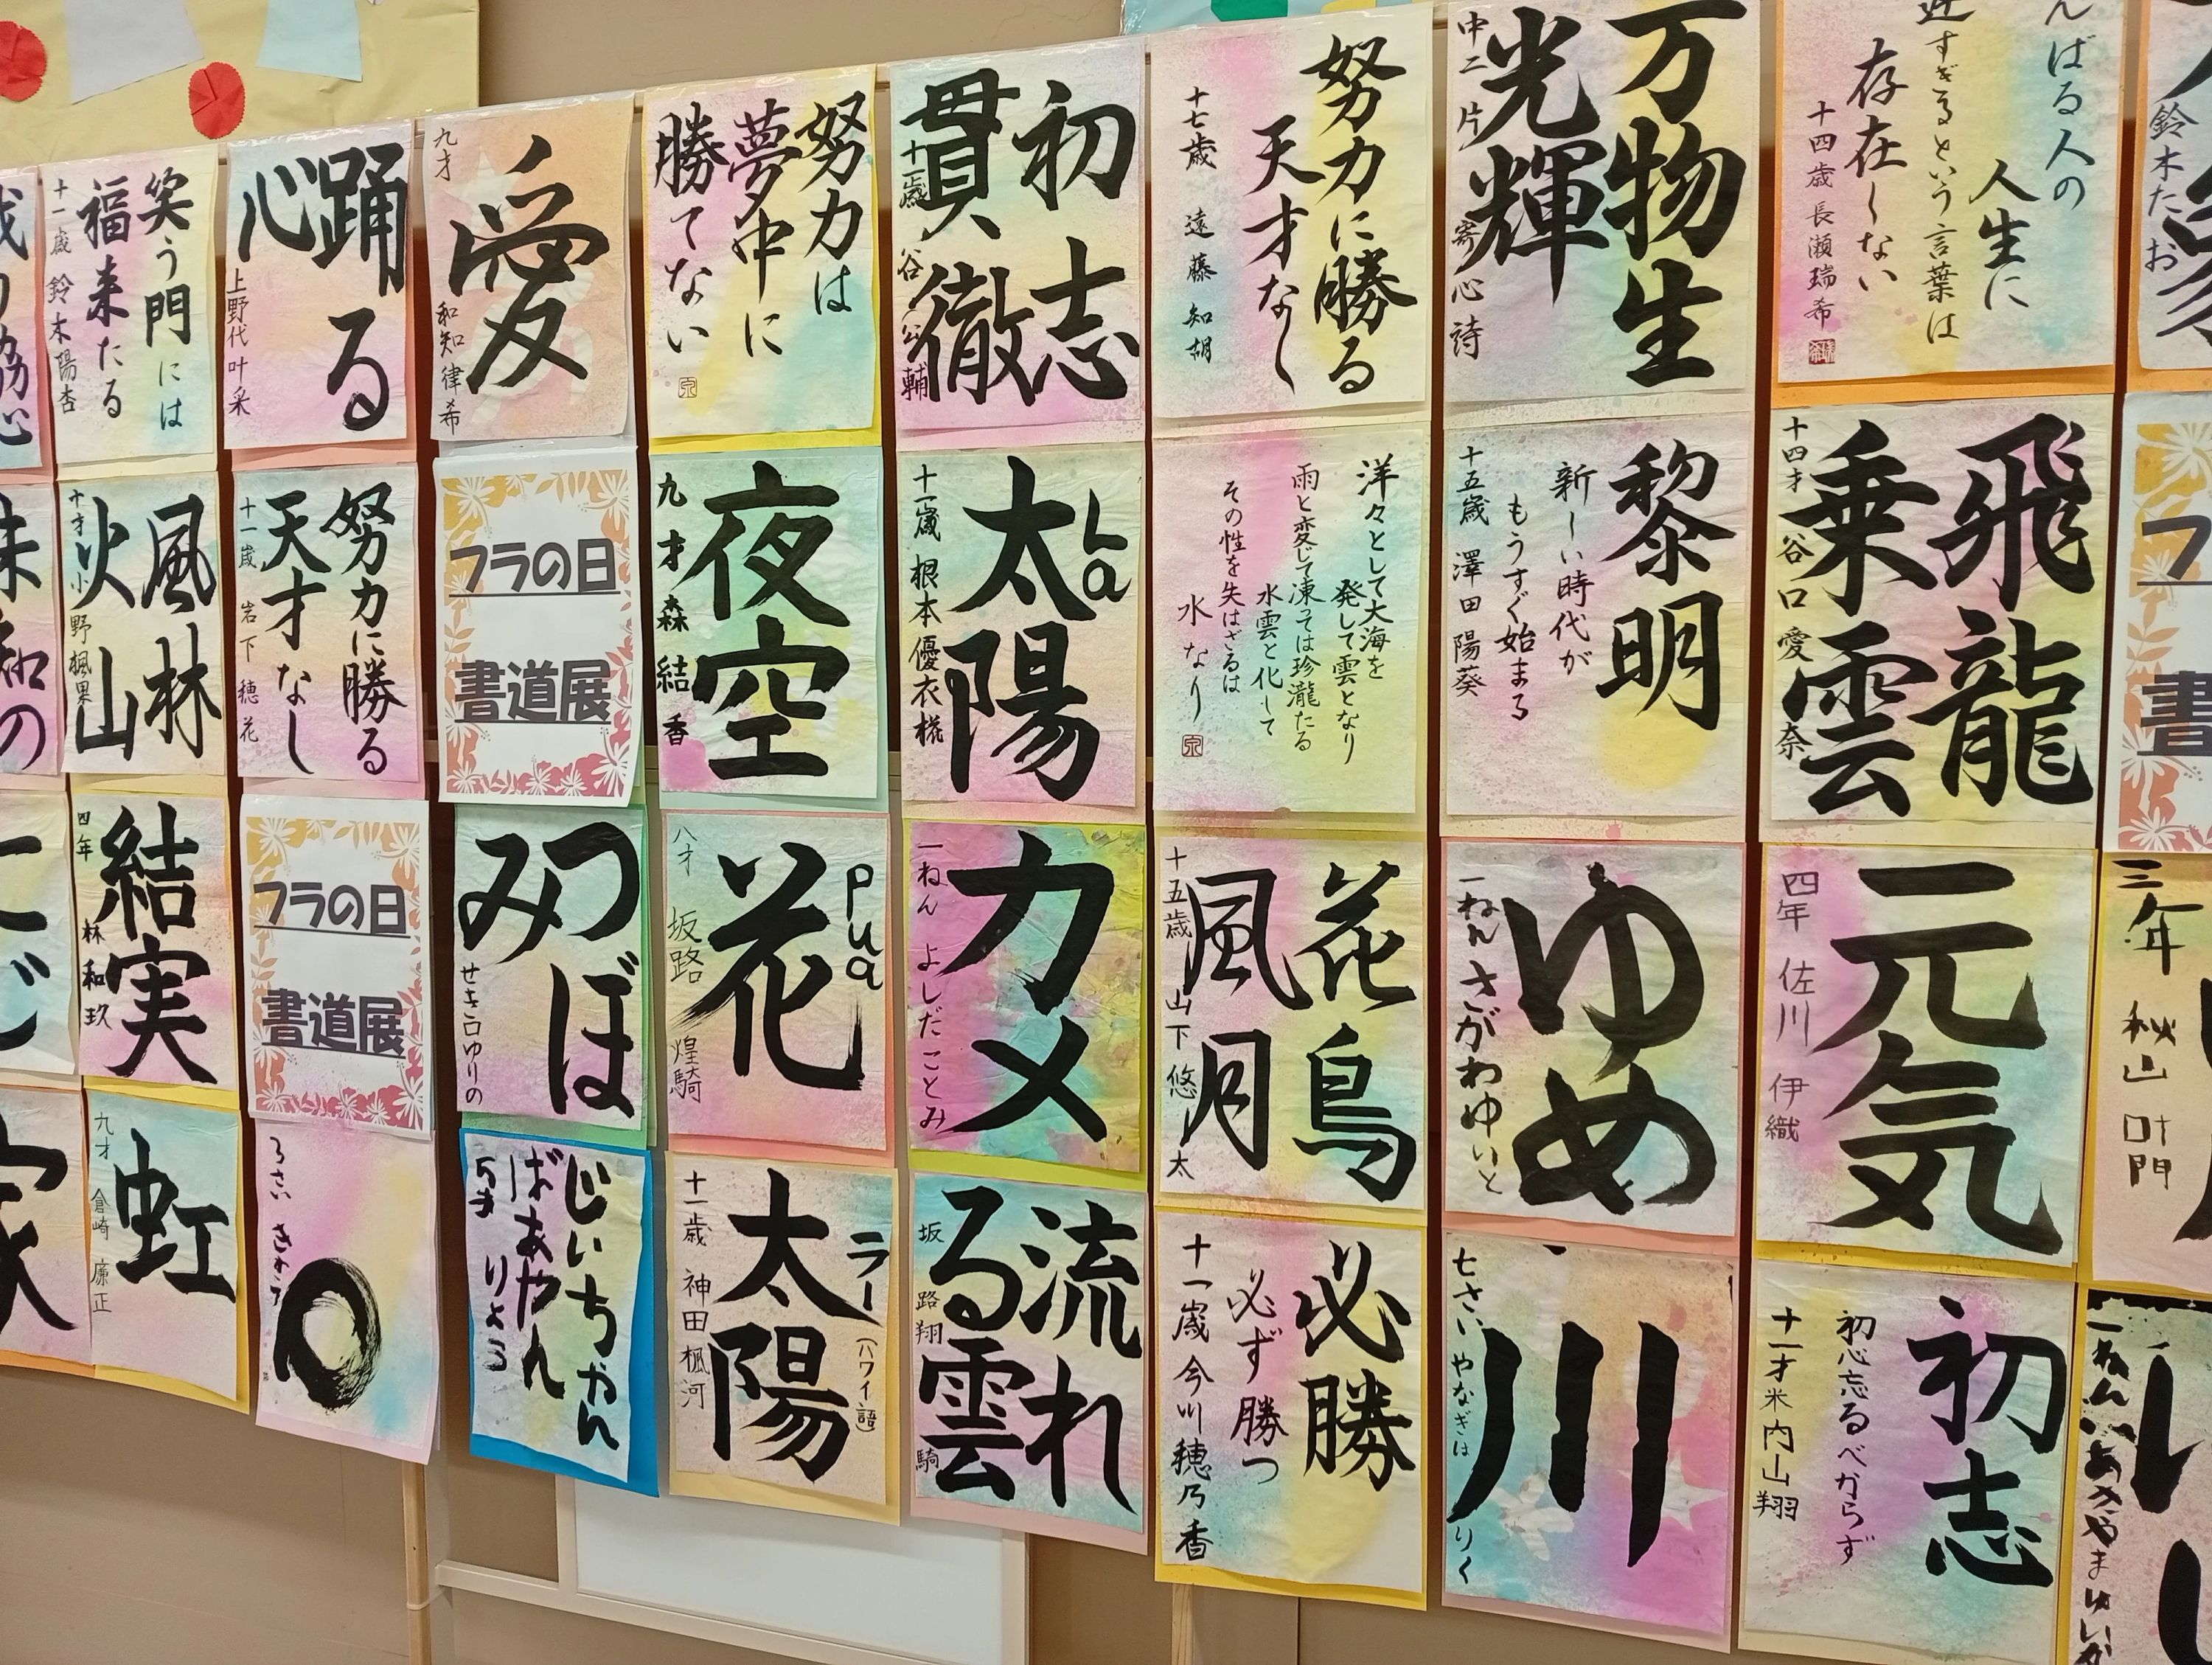 笑う門には
福来たる
十一歳 鈴木陽杏
踊る
心
上野代叶采
愛
九才
和知律希
努力は
夢中に
勝てない
初志
貫徹
十一歳 谷 公輔
努力に勝る
天才なし
十七歳 遠藤知胡
万物生
光輝
中二 片寄心詩
んばる人の
人生に
近すぎるという言葉は
存在しない
十四歳 長瀬瑞希
鈴木たお
風林
火山
十才 小野楓果
努力に勝る
天才なし
十一歳 岩下穂花
フラの日
書道展
夜空
九才 森 結香
La
太陽
十一歳 根本優衣椛
洋々として大海を
発して雲となり
雨と変じて
凍っては珍瀧たる
水雲と化して
その性を失はざるは
水なり
黎明
新しい時代が
もうすぐ始まる
十五歳 澤田陽葵
飛龍
乗雲
十四才 谷口愛奈
結実
四年 林 和玖
フラの日
書道展
つぼ
み
せき口ゆりの
pua
花
八才 坂路 煌騎
カメ
一ねん よしだことみ
花鳥
風月
十五歳 山下悠太
ゆめ
一ねん さがわゆいと
元気
四年 佐川 伊織
三年 秋山 叶門
虹
九才 倉崎 廉正
じいちゃん
ばあやん
5才 りょう
ラー(ハワイ語)
太陽
十一歳 神田楓河
流れ
る雲
坂路翔騎
必勝
必ず勝つ
十一歳 今川穂乃香
川
七さい やなぎは りく
初志
初心忘るべからず
十二才 米内山翔